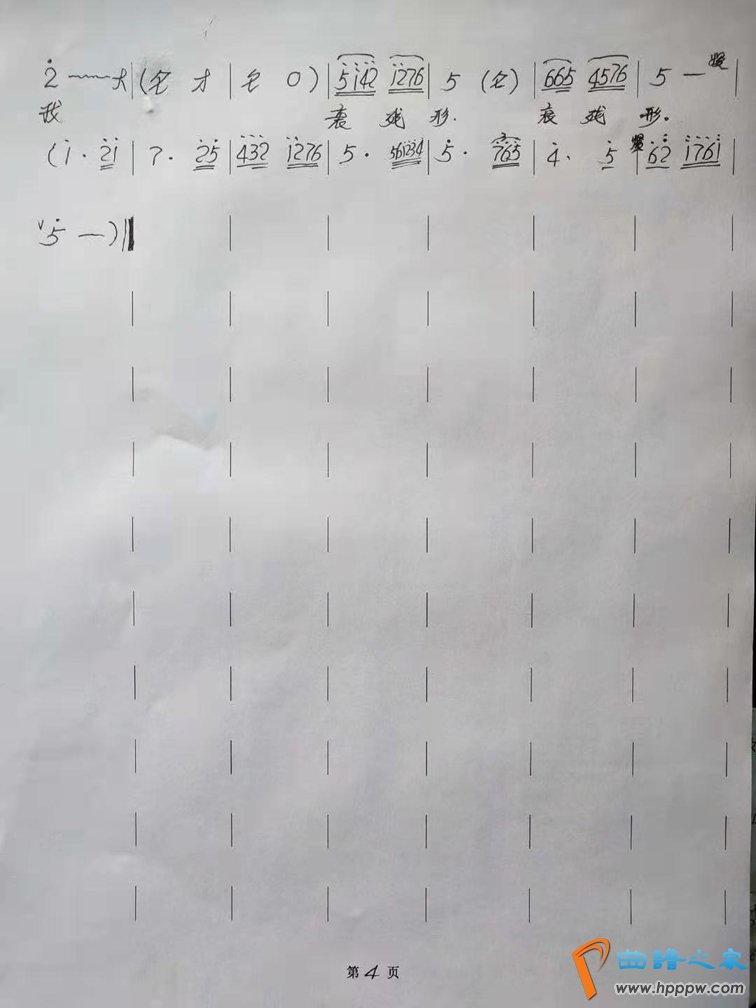 2̇ ﹏ 大 | (仓 才 | 仓 0) | 5̇1̇4̇2̇ 1̇276 | 5 (仓) | 665 4576 | 5 — |
我 衰 残 形. 衰 残 形.
(1̇. 2̇1̇ | 7. 2̇5̇ | 4̇3̇2̇ 1̇276 | 5. 561234 | 5̇. 7̇6̇5̇ | 4̇. 5̇ | 6̇2̇ 1̇7̇6̇1̇ |
ˇ5̇ —) ‖
第 4 页
曲谱之家
www.hppw.com